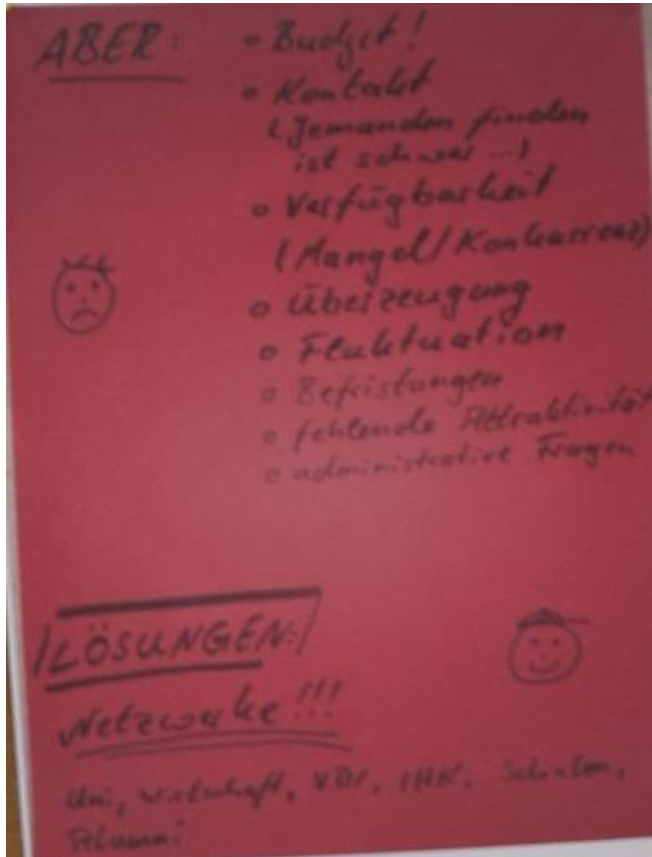 ABER:
o Budget!
o Kontakt
(Jemanden finden
ist schwer ...)
o Verfügbarkeit
(Mangel/Konkurrenz)
o Überzeugung
o Fluktuation
o Befristungen
o fehlende Attraktivität
o administrative Fragen
LÖSUNGEN:
Netzwerke!!!
Uni, Wirtschaft, VDI, IHK, Schulen,
Alumni